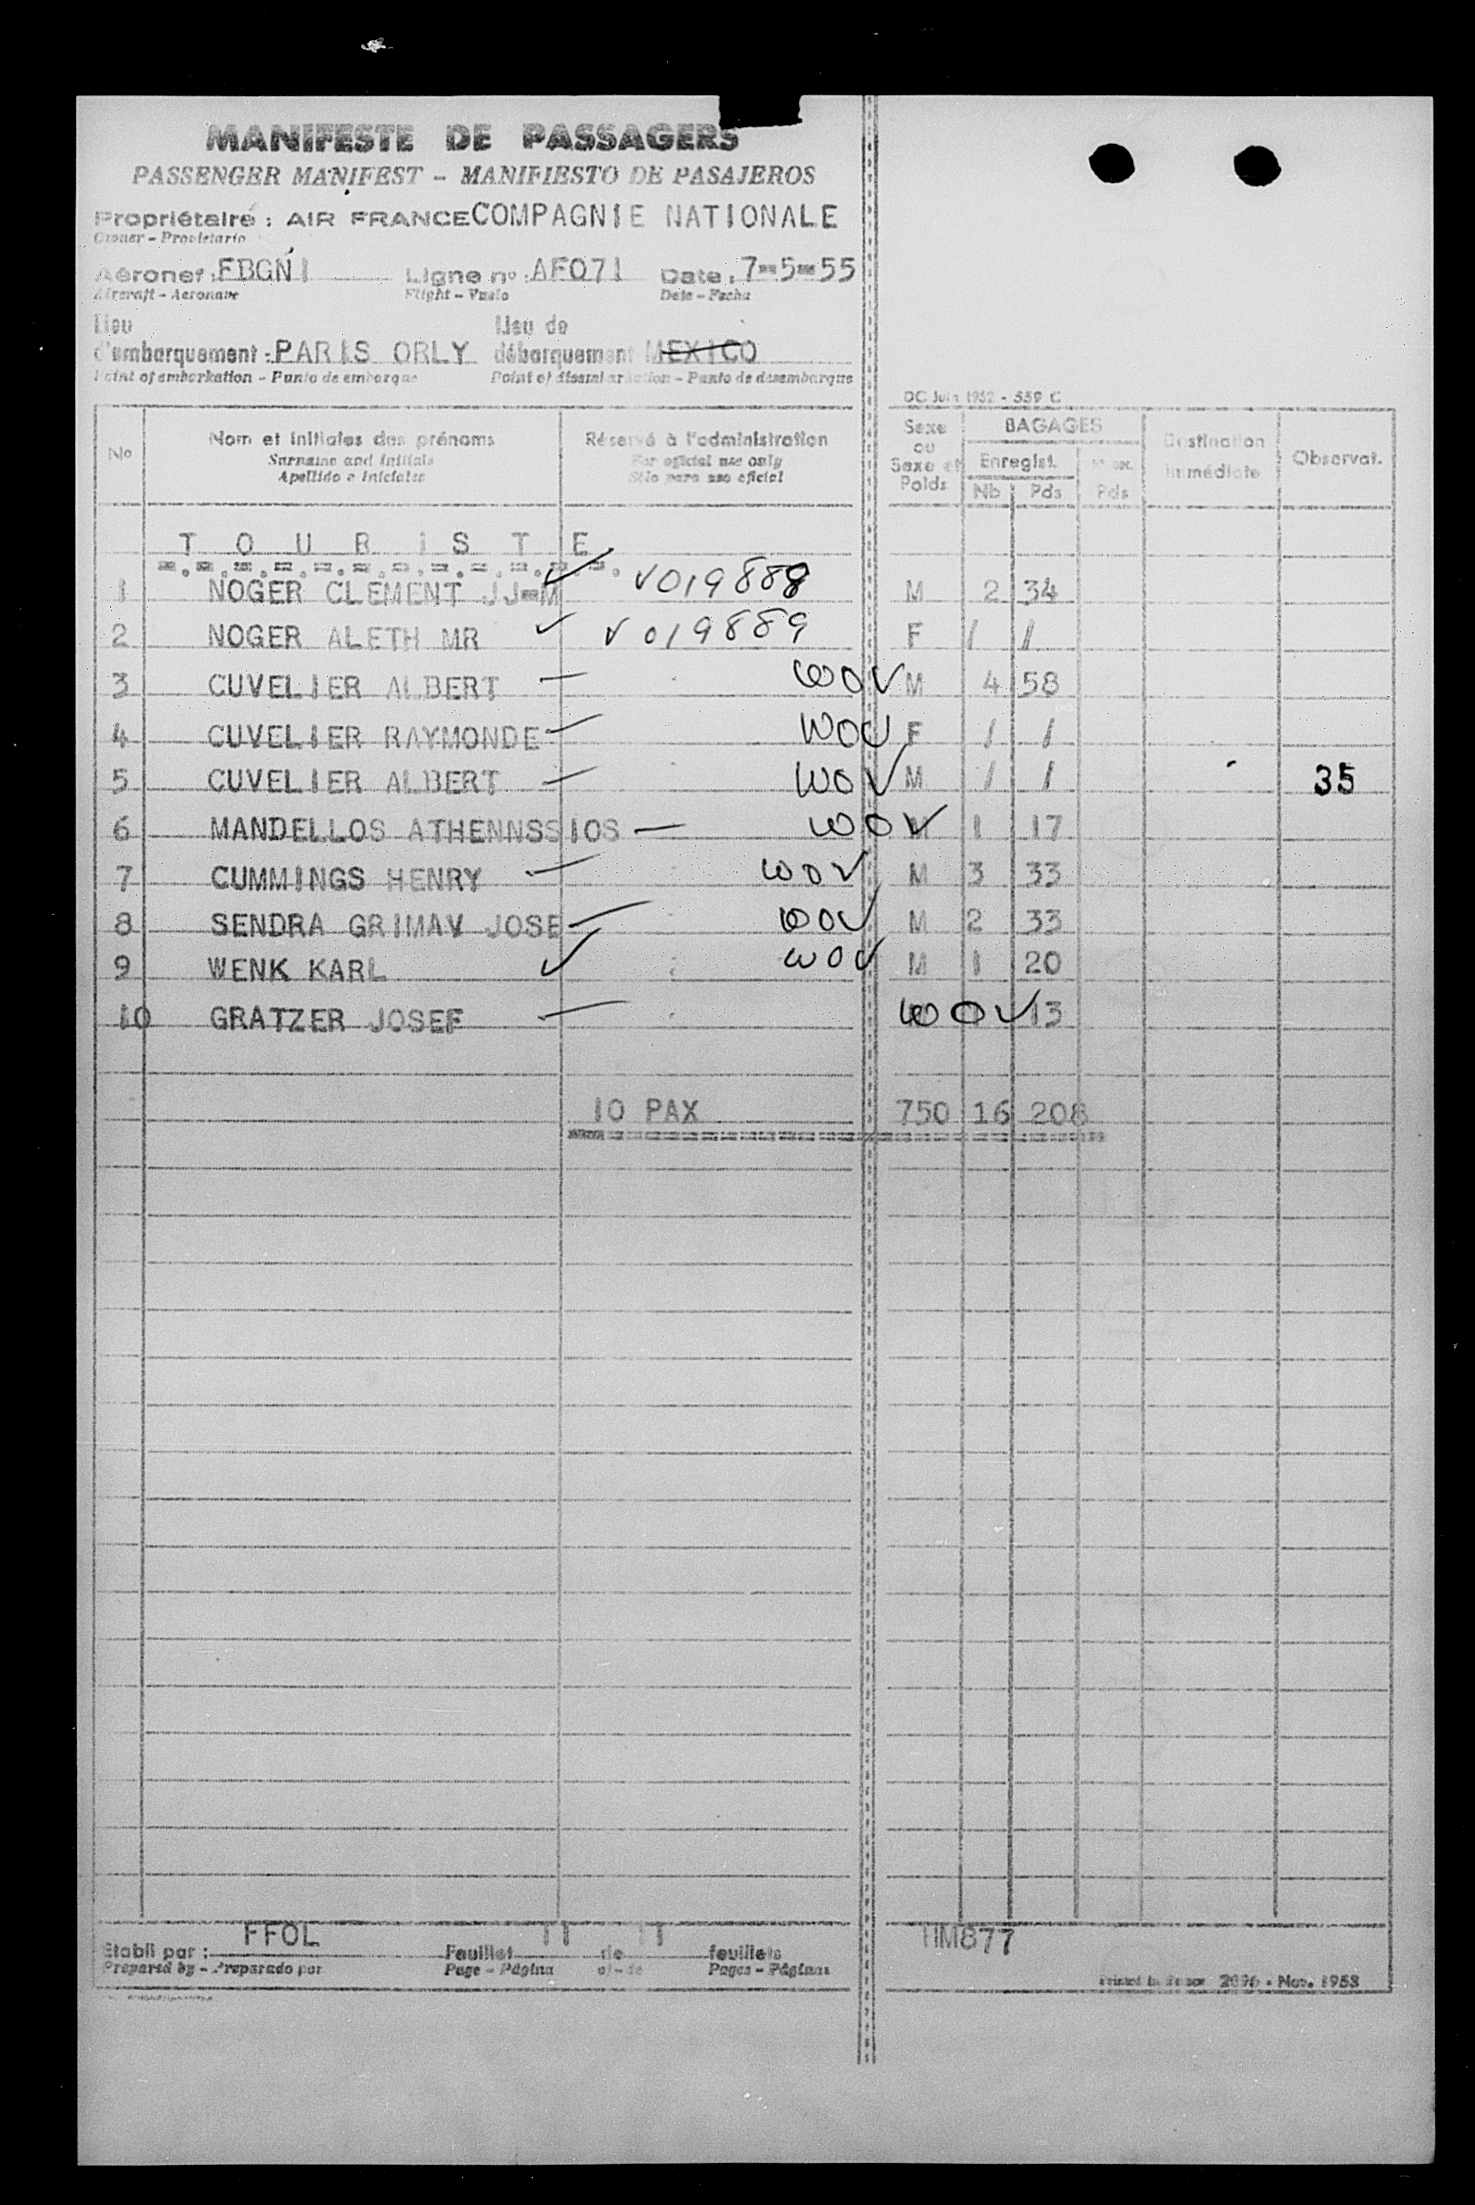 MANIFESTE DE PASSAGERS
PASSENGER MANIFEST - MANIFIESTO DE PASAJEROS
Propriétaire : AIR FRANCE COMPAGNIE NATIONALE
Owner - Propietario
Aéronef : FBGNI Ligne n° : AF071 Date : 7-5-55
Aircraft - Aeronave Flight - Vuelo Date - Fecha
Lieu Lieu de
d'embarquement : PARIS ORLY débarquement MEXICO
Point of embarkation - Punto de embarque Point of disembarkation - Punto de desembarque
OC Juin 1952 - 559 C
No Nom et initiales des prénoms Réservé à l'administration Sexe ou Sexe et Poids BAGAGES Destination immédiate Observat.
Surname and initials For official use only Enregist.
Apellido e iniciales Sólo para uso oficial Nb Pds Pds
T O U R I S T E
1 NOGER CLEMENT JJ-M ✓ √019888 M 2 34
2 NOGER ALETH MR ✓ √019889 F / /
3 CUVELIER ALBERT — WOV M 4 58
4 CUVELIER RAYMONDE — WOV F / /
5 CUVELIER ALBERT — WOV M / / 35
6 MANDELLOS ATHENNSSIOS — WOV M 1 17
7 CUMMINGS HENRY — WOV M 3 33
8 SENDRA GRIMAV JOSE — WOV M 2 33
9 WENK KARL ✓ WOV M 1 20
10 GRATZER JOSEF — WOV 13
10 PAX 750 16 208
Etabli par : FFOL Feuillet 11 de 11 feuillets HM877
Prepared by - Preparado por Page - Página of - de Pages - Páginas
Printed in France 2896 - Nov. 1953